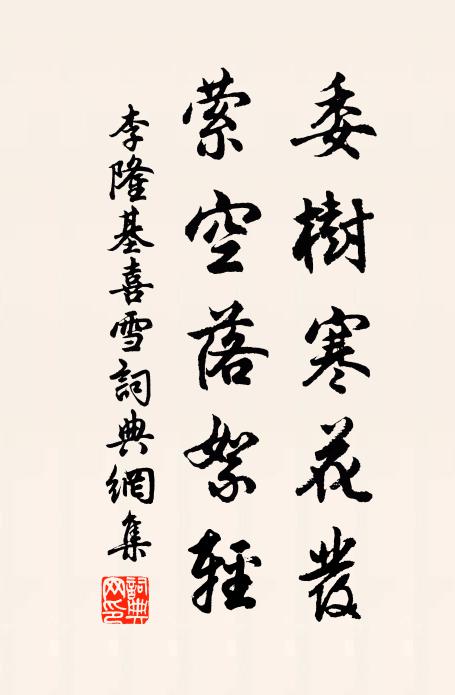 委樹寒花發
萦空落絮輕
李隆基喜雪詞典網集
詞典网印